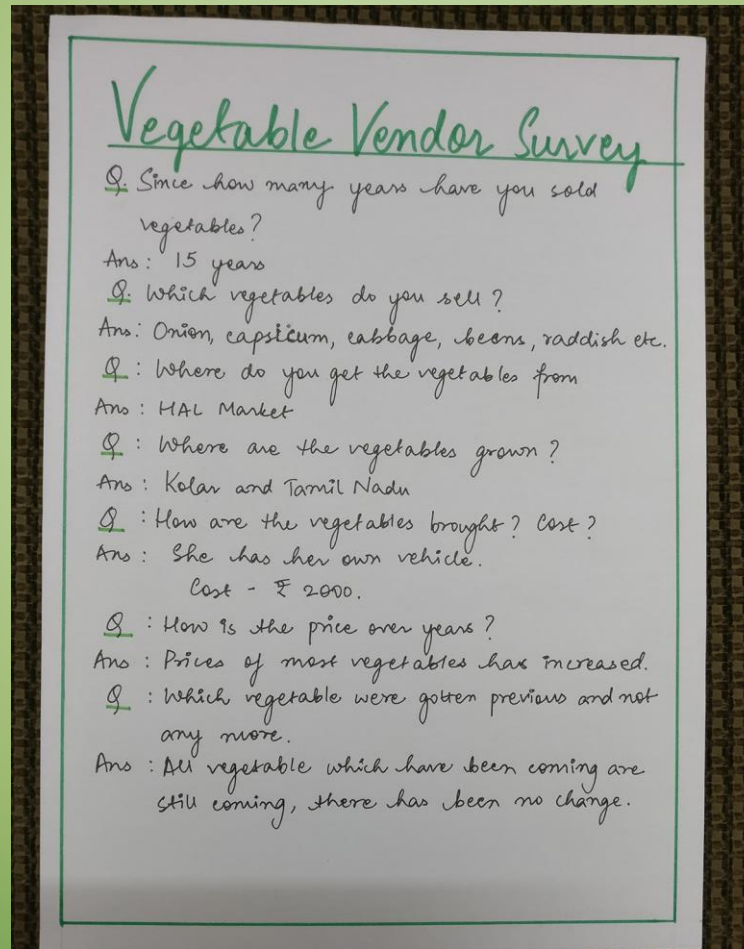 Vegetable Vendor Survey
Q. Since how many years have you sold
vegetables?
Ans: 15 years
Q. Which vegetables do you sell?
Ans: Onion, capsicum, cabbage, beens, raddish etc.
Q : Where do you get the vegetables from
Ans : HAL Market
Q : Where are the vegetables grown?
Ans : Kolar and Tamil Nadu
Q : How are the vegetables brought? Cost?
Ans : She has her own vehicle.
Cost - ₹ 2000.
Q : How is the price over years?
Ans : Prices of most vegetables has increased.
Q : Which vegetable were gotten previous and not
any more.
Ans : All vegetable which have been coming are
still coming, there has been no change.